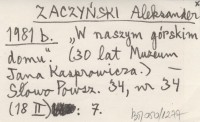 ZACZYŃSKI Aleksander
1981 b. „W naszym górskim
domu". (30 lat Muzeum
Jana Kasprowicza.) —
Słowo Powsz. 34, nr 34
(18 II): 7.